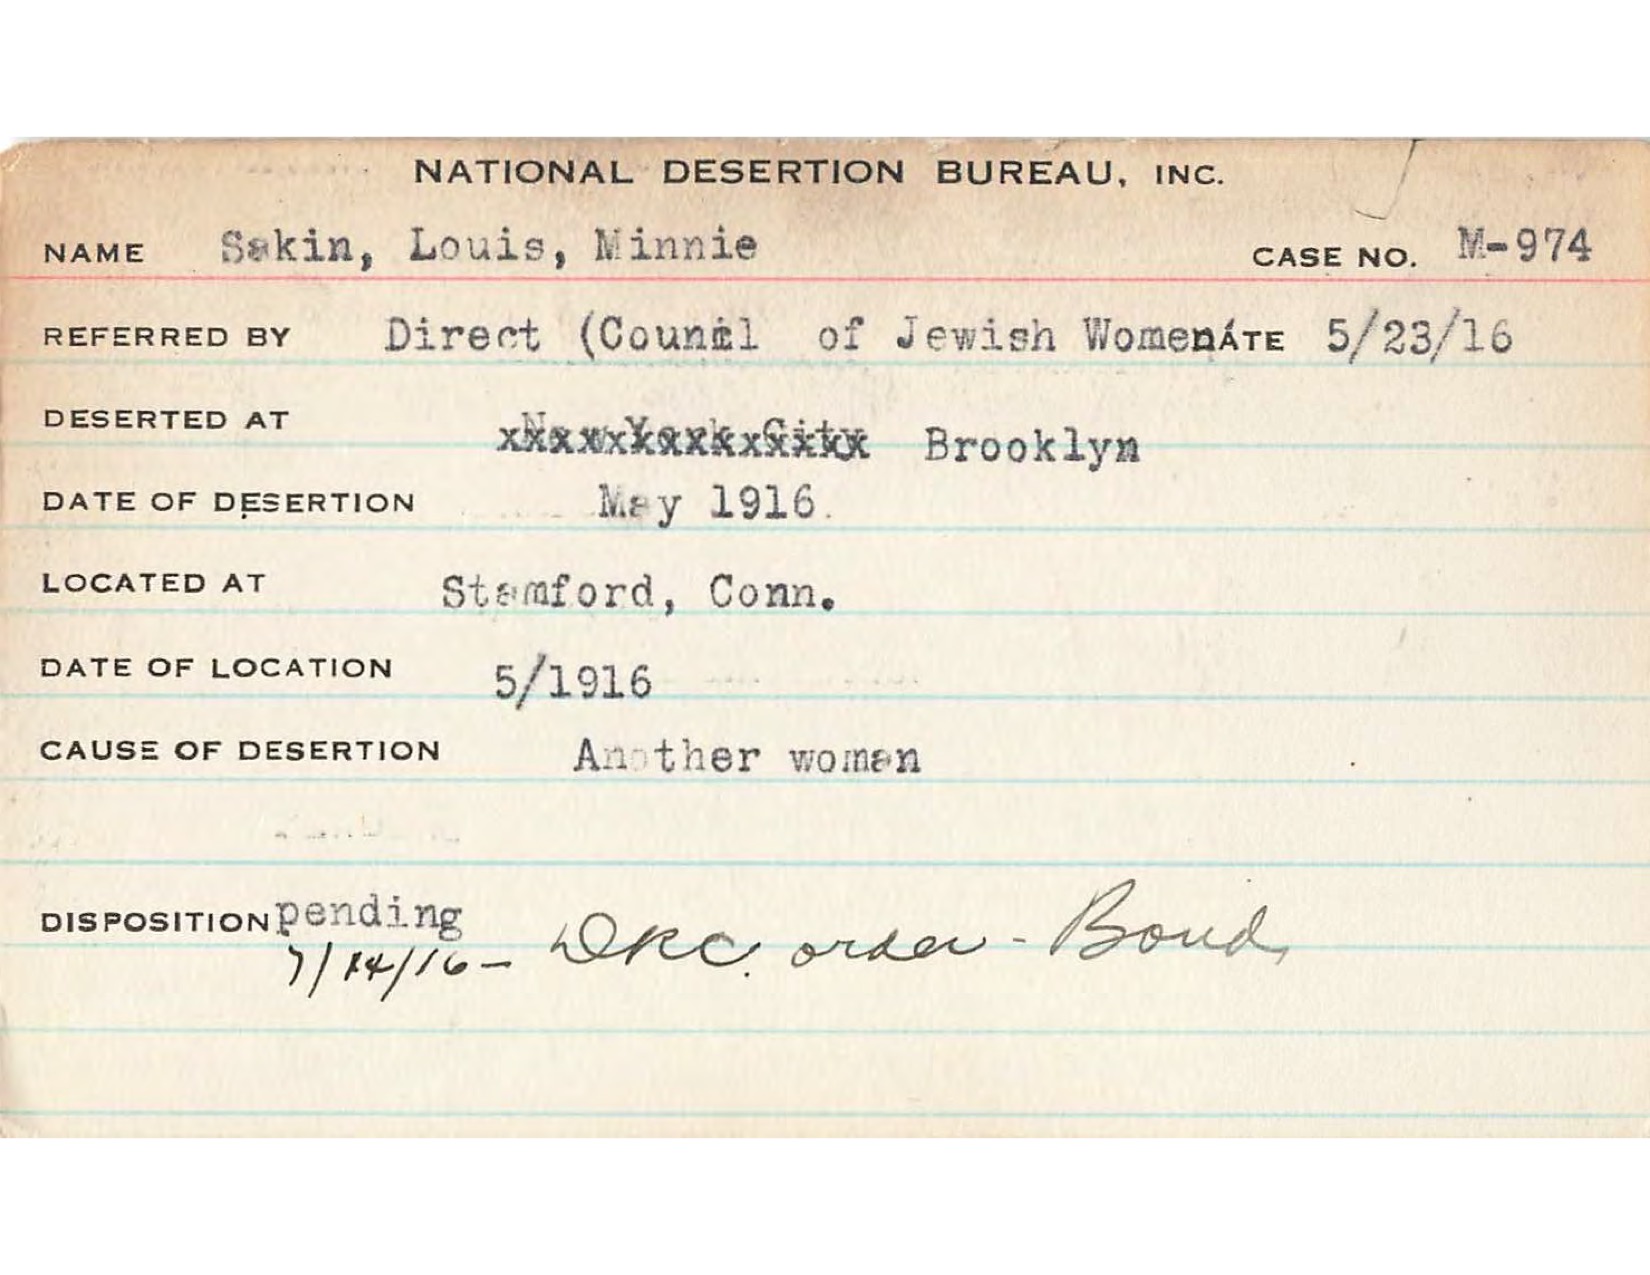 NATIONAL DESERTION BUREAU, INC.
NAME Sakin, Louis, Minnie CASE NO. M-974
REFERRED BY Direct (Council of Jewish Women DATE 5/23/16
DESERTED AT New York City Brooklyn
DATE OF DESERTION May 1916
LOCATED AT Stamford, Conn.
DATE OF LOCATION 5/1916
CAUSE OF DESERTION Another woman
DISPOSITION pending
7/14/16 - DRC. order - Bond